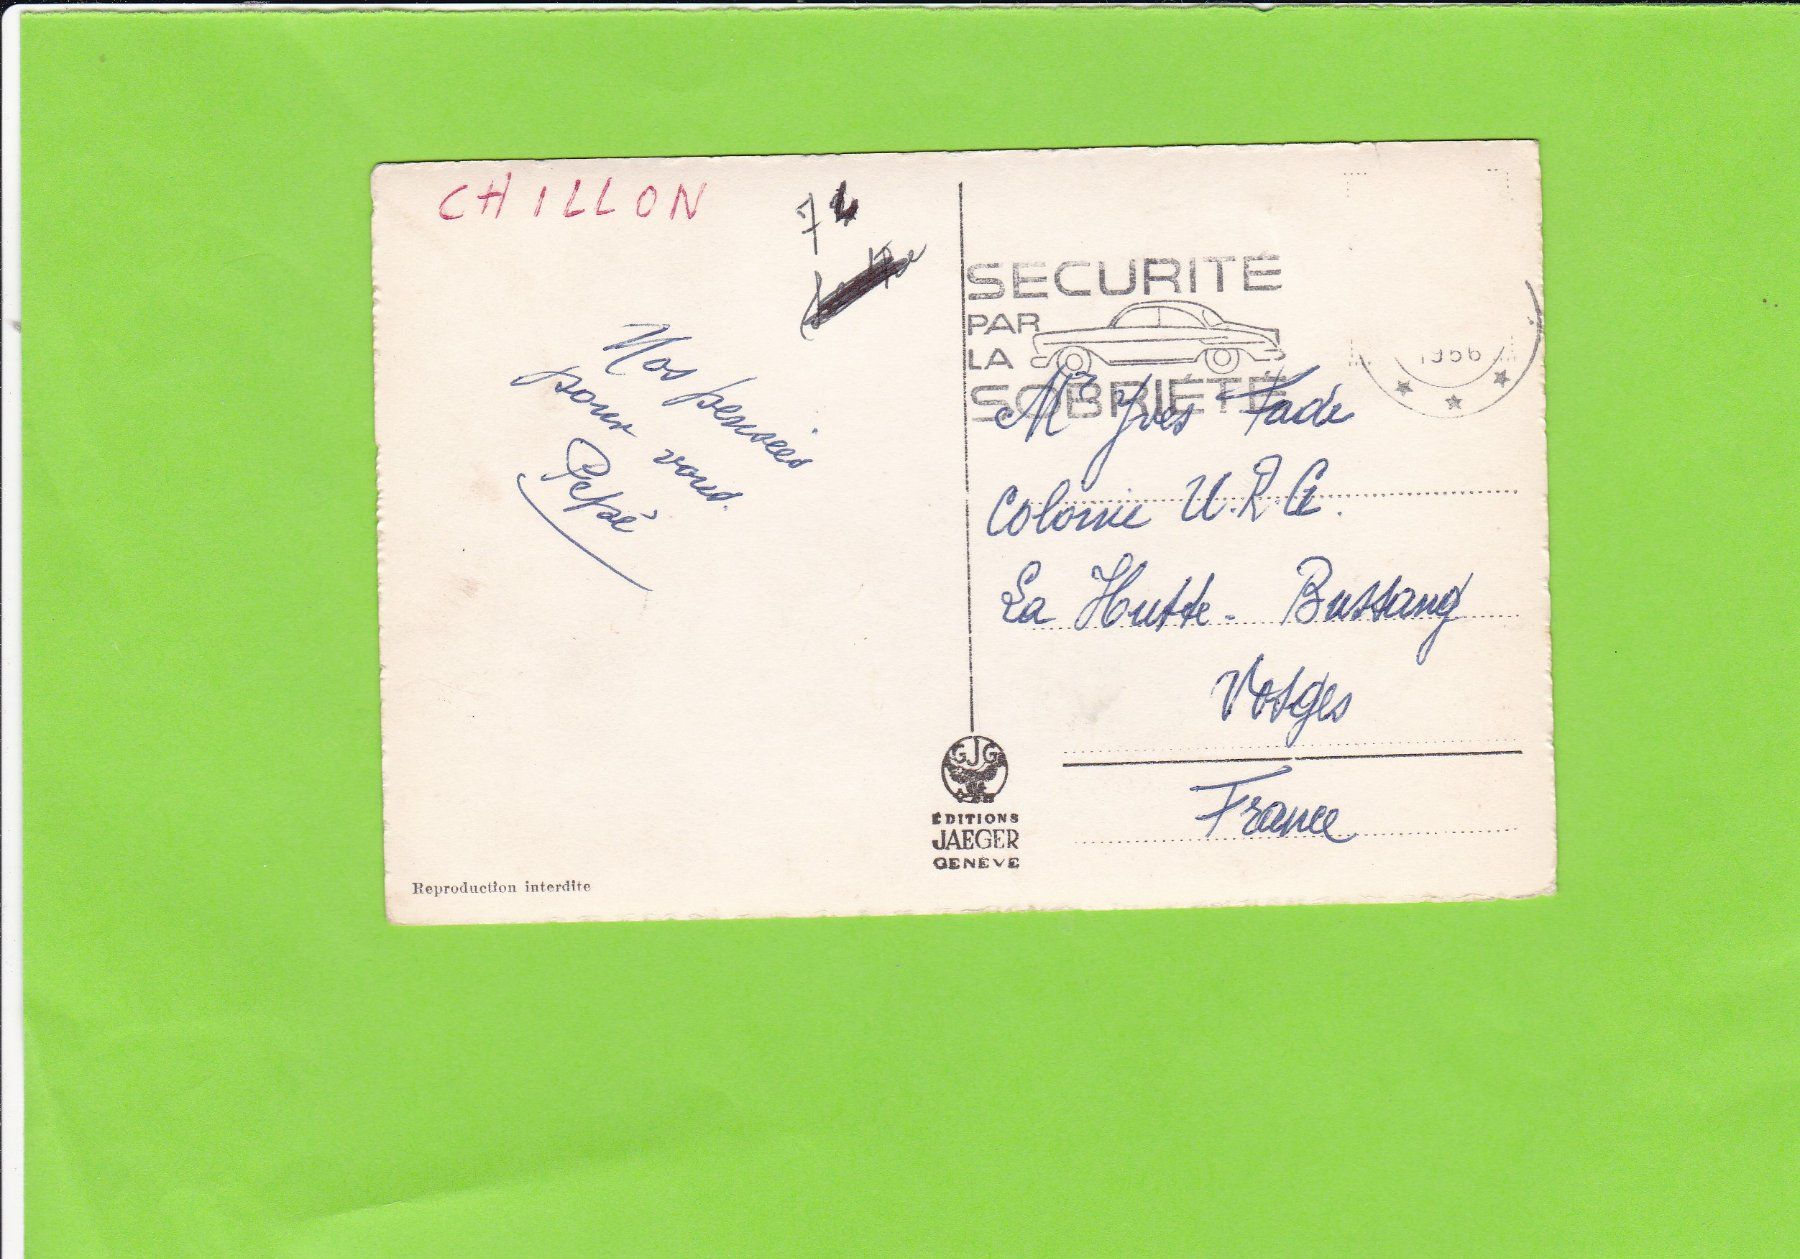 CHILLON
74
Nos pensées
pour vous.
Pépé
SECURITE
PAR
LA
SOBRIÉTÉ
1966
Mr Yves Fade
Colonie U.R.G.
La Hutte - Bussang
Vosges
France
GJG
ÉDITIONS
JAEGER
GENÈVE
Reproduction interdite